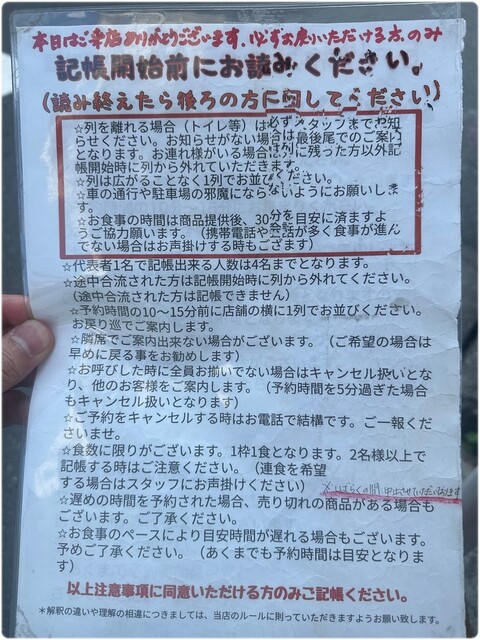 本日はご来店ありがとうございます。必ずお戻りいただける方のみ
記帳開始前にお読みください。
(読み終えたら後ろの方に回してください)
☆列を離れる場合(トイレ等)は必ずスタッフまでお知
らせください。お知らせがない場合は最後尾でのご案内
となります。お連れ様がいる場合は列に残った方以外記
帳開始時に列から外れていただきます。
☆列は広がることなく1列でお並びください。
☆車の通行や駐車場の邪魔にならないようにお願いしま
す。
☆お食事の時間は商品提供後、30分を目安に済ますよ
うご協力願います。(携帯電話や会話が多く食事が進ん
でない場合はお声掛けする時もござます)
☆代表者1名で記帳出来る人数は4名までとなります。
☆途中合流された方は記帳開始時に列から外れてください。
(途中合流された方は記帳できません)
☆予約時間の10〜15分前に店舗の横に1列でお並びください。
お戻り巡でご案内します。
☆隣席でご案内出来ない場合がございます。(ご希望の場合は
早めに戻る事をお勧めします)
☆お呼びした時に全員お揃いでない場合はキャンセル扱いとな
り、他のお客様をご案内します。(予約時間を5分過ぎた場合
もキャンセル扱いとなります)
☆ご予約をキャンセルする時はお電話で結構です。ご一報くだ
さいませ。
☆食数に限りがございます。1枠1食となります。2名様以上で
記帳する時はご注意ください。(連食を希望
する場合はスタッフにお声掛けください)
※しばらくの間、中止させていただいております
☆遅めの時間を予約された場合、売り切れの商品がある場合も
ございます。ご了承ください。
☆お食事のペースにより目安時間が遅れる場合もございます。
予めご了承ください。(あくまでも予約時間は目安となりま
す)
以上注意事項に同意いただける方のみご記帳ください。
*解釈の違いや理解の相違につきましては、当店のルールに則っていただきますようお願い致します。